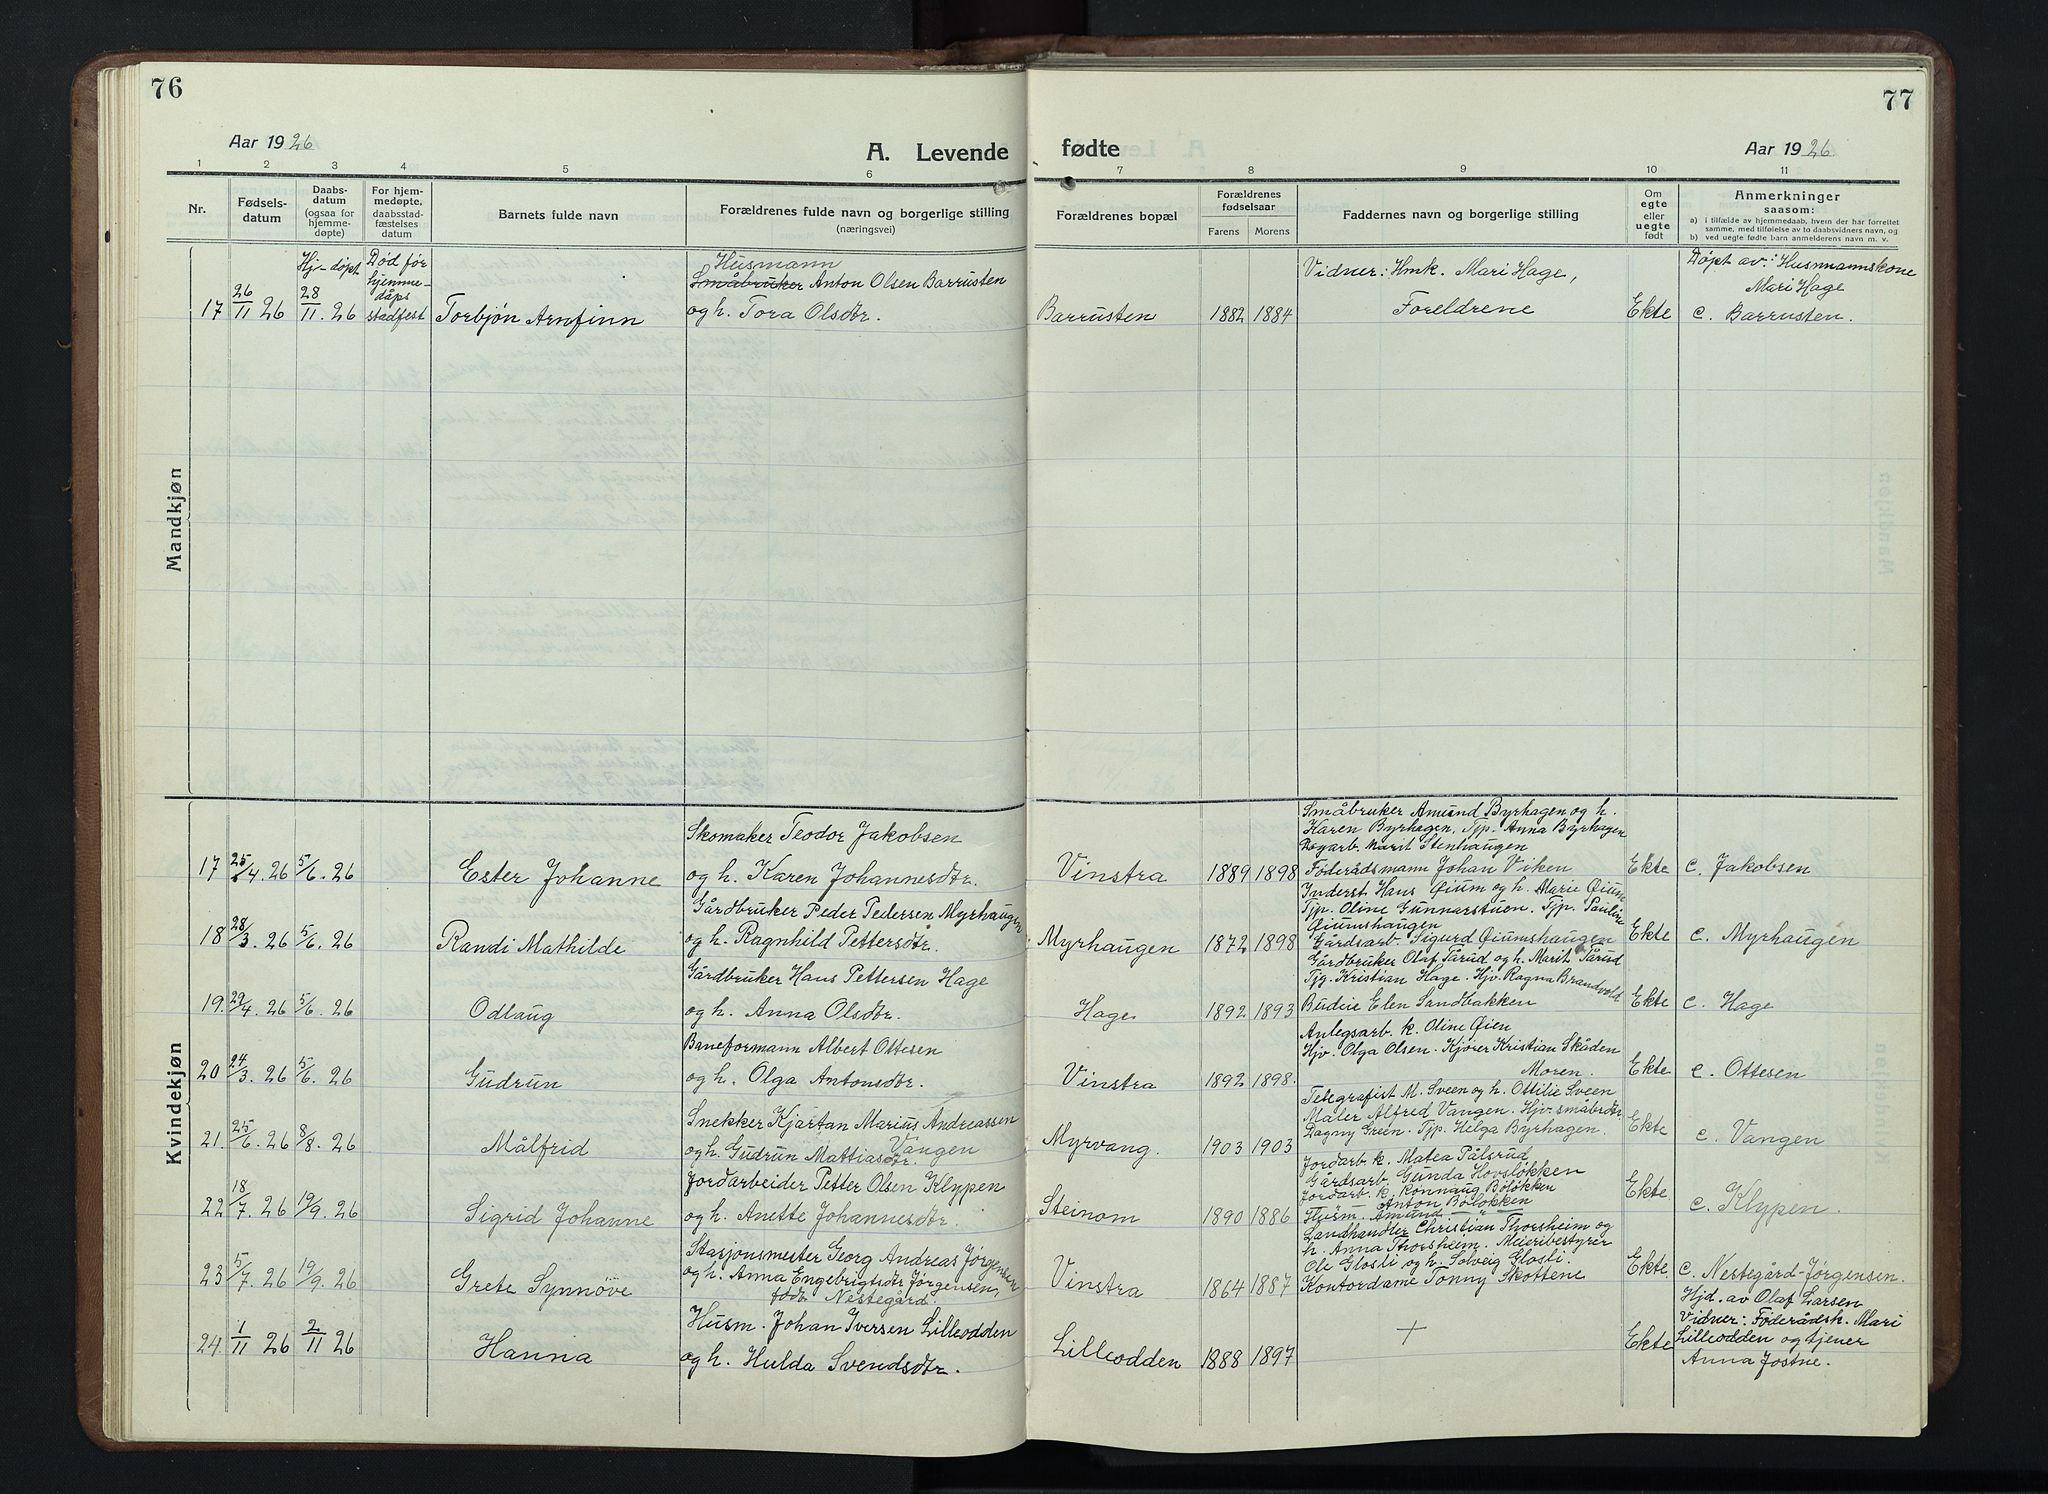 76
77
Aar 1926
A. Levende
fødte
Aar 1926.
1 2 3 4 5 6 7 8 9 10 11
Nr.
Fødsels-
datum
Daabs-
datum
(ogsaa for
hjemme-
døpte)
For hjem-
medøpte,
daabsstad-
fæstelses
datum
Barnets fulde navn
Forældrenes fulde navn og borgerlige stilling
(næringsvei)
Forældrenes bopæl
Forældrenes
fødselsaar
Farens Morens
Faddernes navn og borgerlige stilling
Om
egte
eller
uegte
født
Anmerkninger
saasom:
a) i tilfælde av hjemmedaab, hvem der har forrettet
samme, med tilføielse av to daabsvidners navn, og
b) ved uegte fødte barn anmelderens navn m. v.
Mandkjøn
17 26/11 26
Hj-døpt
28/11. 26
Død før
hjemme-
dåps
stadfest
Torbjøn Arnfinn
Husmann
Småbruker Anton Olsen Barrusten
og h. Tora Olsdtr.
Barrusten 1882 1884
Vidner: Hmk. Mari Hage,
Foreldrene
Ekte
Døpt av: Husmannskone
Mari Hage
c. Barrusten.
Kvindekjøn
17 25/4. 26 5/6. 26 Ester Johanne
Skomaker Teodor Jakobsen
og h. Karen Johannesdtr.
Vinstra 1889 1898
Småbruker Amund Byrhagen og h.
Karen Byrhagen, Tjp. Anna Byrhagen
Dagarb. Marit Stenhaugen
Føderådsmann Johan Viken
Ekte c. Jakobsen
18 28/3. 26 5/6. 26 Randi Mathilde
Gårdbruker Peder Pedersen Myrhaugen
og h. Ragnhild Pettersdtr.
Myrhaugen 1872 1898
Inderst Hans Øium og h. Marie Øium
Tjp. Oline Gunnarstuen. Tjp. Pauline
Øiumshaugen
Gårdsarb. Sigurd Øiumshaugen
Ekte c. Myrhaugen
19. 29/4. 26 5/6. 26 Odlaug
Gårdbruker Hans Pettersen Hage
og h. Anna Olsdtr.
Hage 1892 1893
Gårdbruker Olaf Tårud og h. Marit Tårud
Tjg. Kristian Hage. Hjv. Ragna Brandvold
Budeie Elen Sandbakken
Ekte c. Hage
20 24/3. 26 5/6. 26 Gudrun
Baneformann Albert Ottesen
og h. Olga Antonsdtr.
Vinstra 1892 1898.
Anlegsarb. k. Oline Øien
Hjv. Olga Olsen. Kjører Kristian Skåden
Moren.
Ekte c. Ottesen
21. 25/6. 26 8/8. 26 Målfrid
Snekker Kjartan Marius Andreassen
Vangen
og h. Gudrun Mattiasdtr.
Myrvang. 1903 1903
Telegrafist M. Sveen og h. Ottilie Sveen
Maler Alfred Vangen. Hjv. småbrdtr.
Dagny Green. Tjp. Helga Byrhagen.
Ekte c. Vangen
22 18/7. 26 19/9. 26 Sigrid Johanne
Jordarbeider Petter Olsen Klypen
og h. Anette Johannesdtr.
Steinom 1890 1886
Jordarb. k. Matea Pålsrud
Gårdsarb. Gunda Hovsløkken
Jordarb. k. Rønnaug Bøløkken
Anton Bøløkken
Husm. Amund — " —
Ekte. c. Klypen.
23 5/7. 26 19/9. 26 Grete Synnøve
Stasjonsmester Georg Andreas Jørgensen
og h. Anna Engebrigtsdtr Jørgensen,
født Nestegård.
Vinstra 1864 1887
Landhandler Christian Thorsheim og
h. Anna Thorsheim. Meieribestyrer
Ole Glosli og h. Solveig Glosli.
Kontordame Tonny Skottene
Ekte. c. Nestegård-Jørgensen.
24. 1/11 26 2/11 26 Hanna
Husm. Johan Iversen Lilleodden
og h. Hulda Svendsdtr.
Lilleodden 1888 1897
+
Ekte
Hjd. av Olaf Larsen
Vidner: Føderådsk. Mari
Lilleodden og tjener
Anna Jostne.